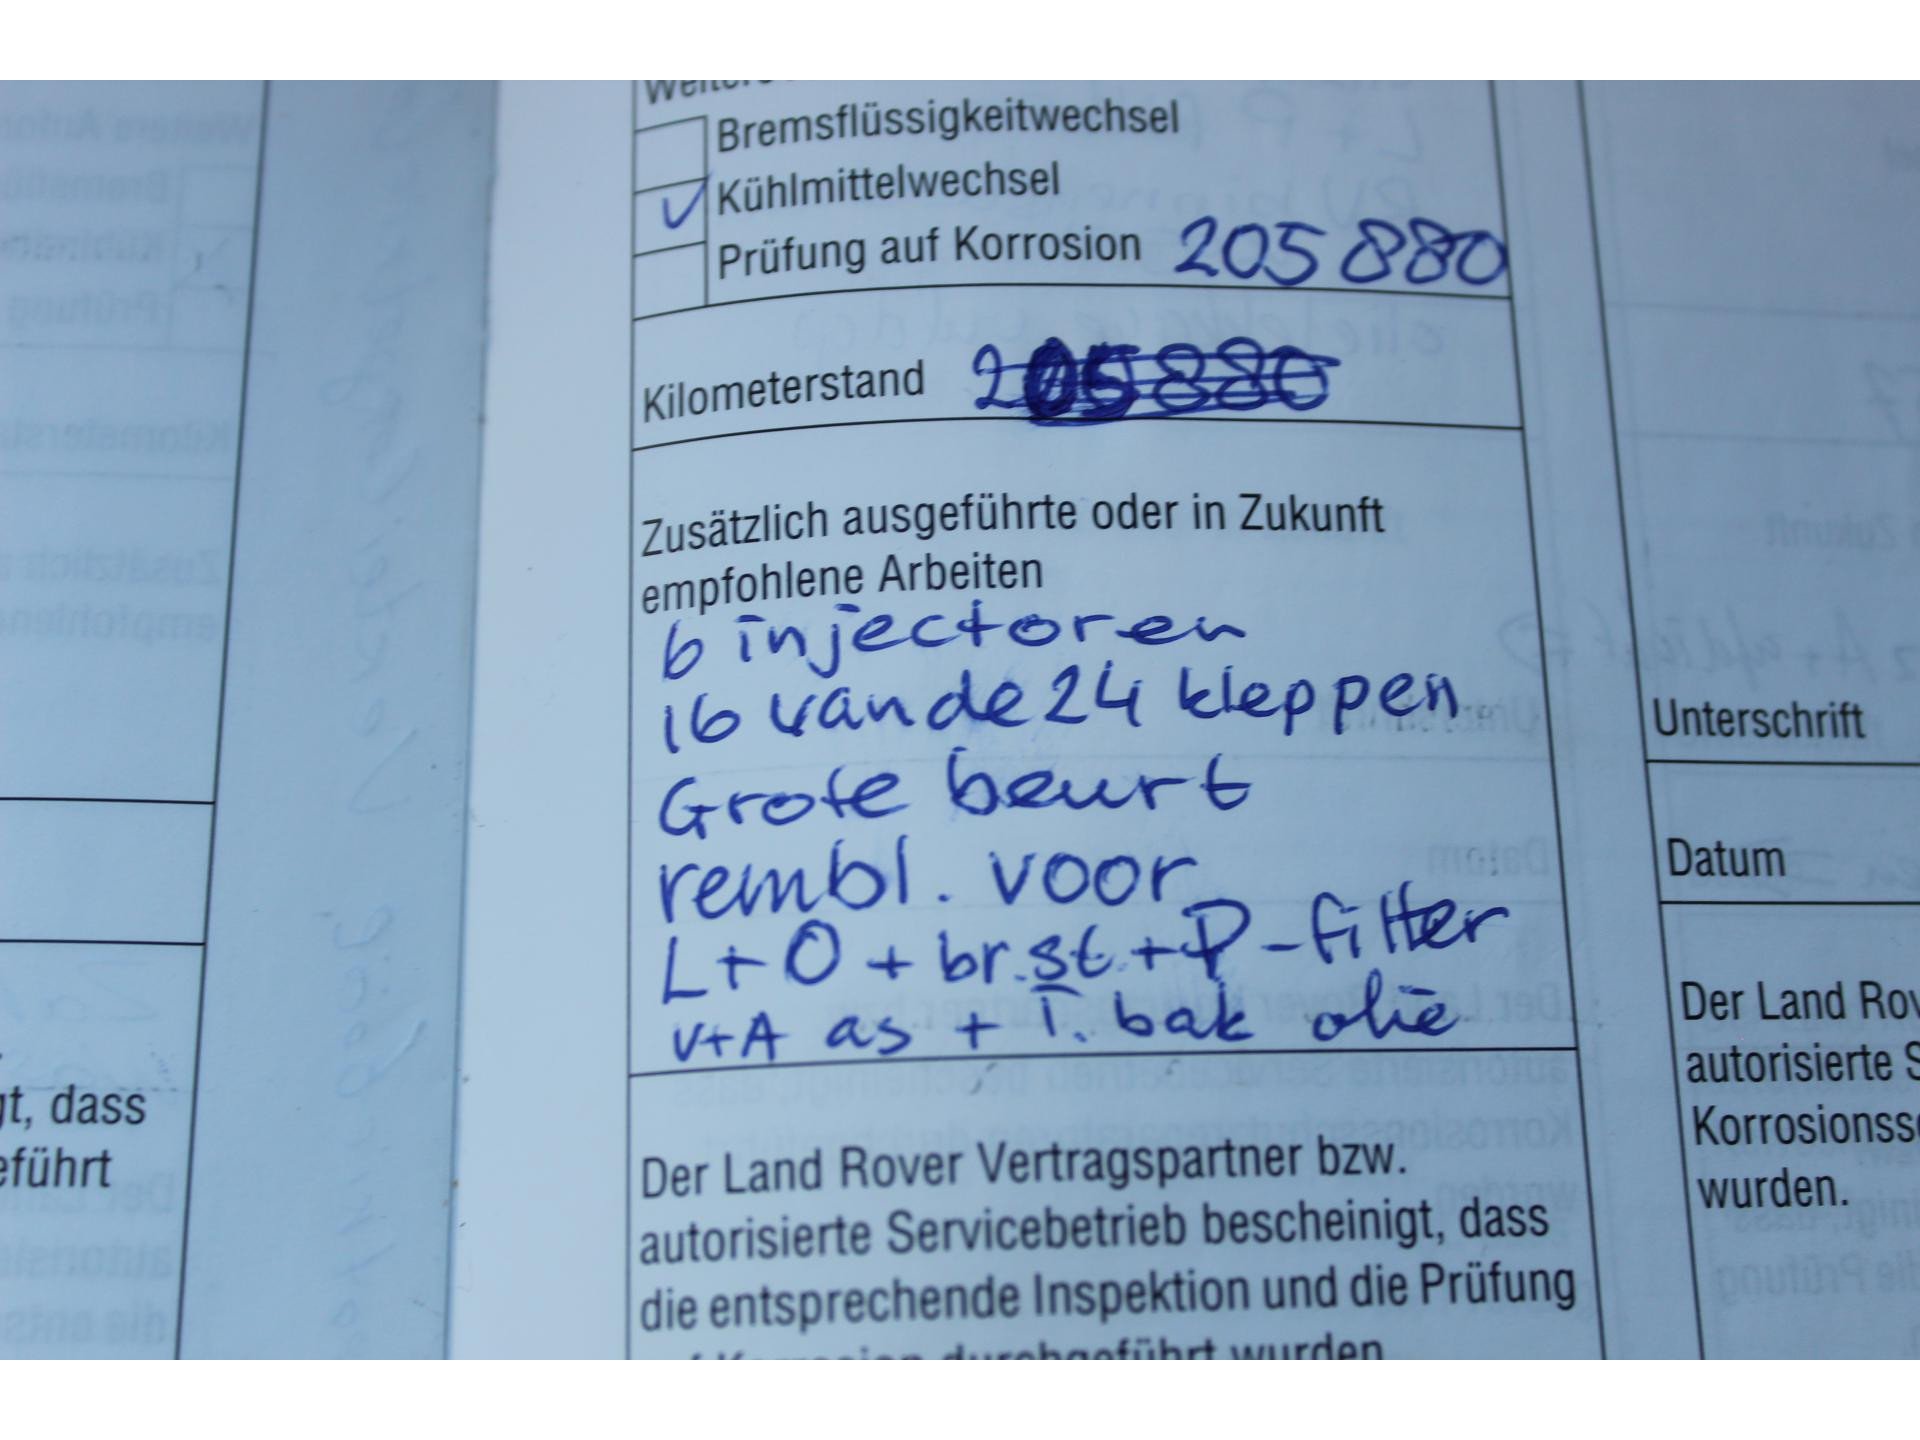 Bremsflüssigkeitwechsel
Kühlmittelwechsel
Prüfung auf Korrosion 205 880
Kilometerstand 205 880
Zusätzlich ausgeführte oder in Zukunft
empfohlene Arbeiten
6 injectoren
16 van de 24 kleppen
Grote beurt
rembl. voor
L+O + br.st.+P-filter
v+A as + i. bak olie
Der Land Rover Vertragspartner bzw.
autorisierte Servicebetrieb bescheinigt, dass
die entsprechende Inspektion und die Prüfung
Korrosion durchgeführt wurden
gt, dass
eführt
Unterschrift
Datum
Der Land Rov
autorisierte S
Korrosionss
wurden.